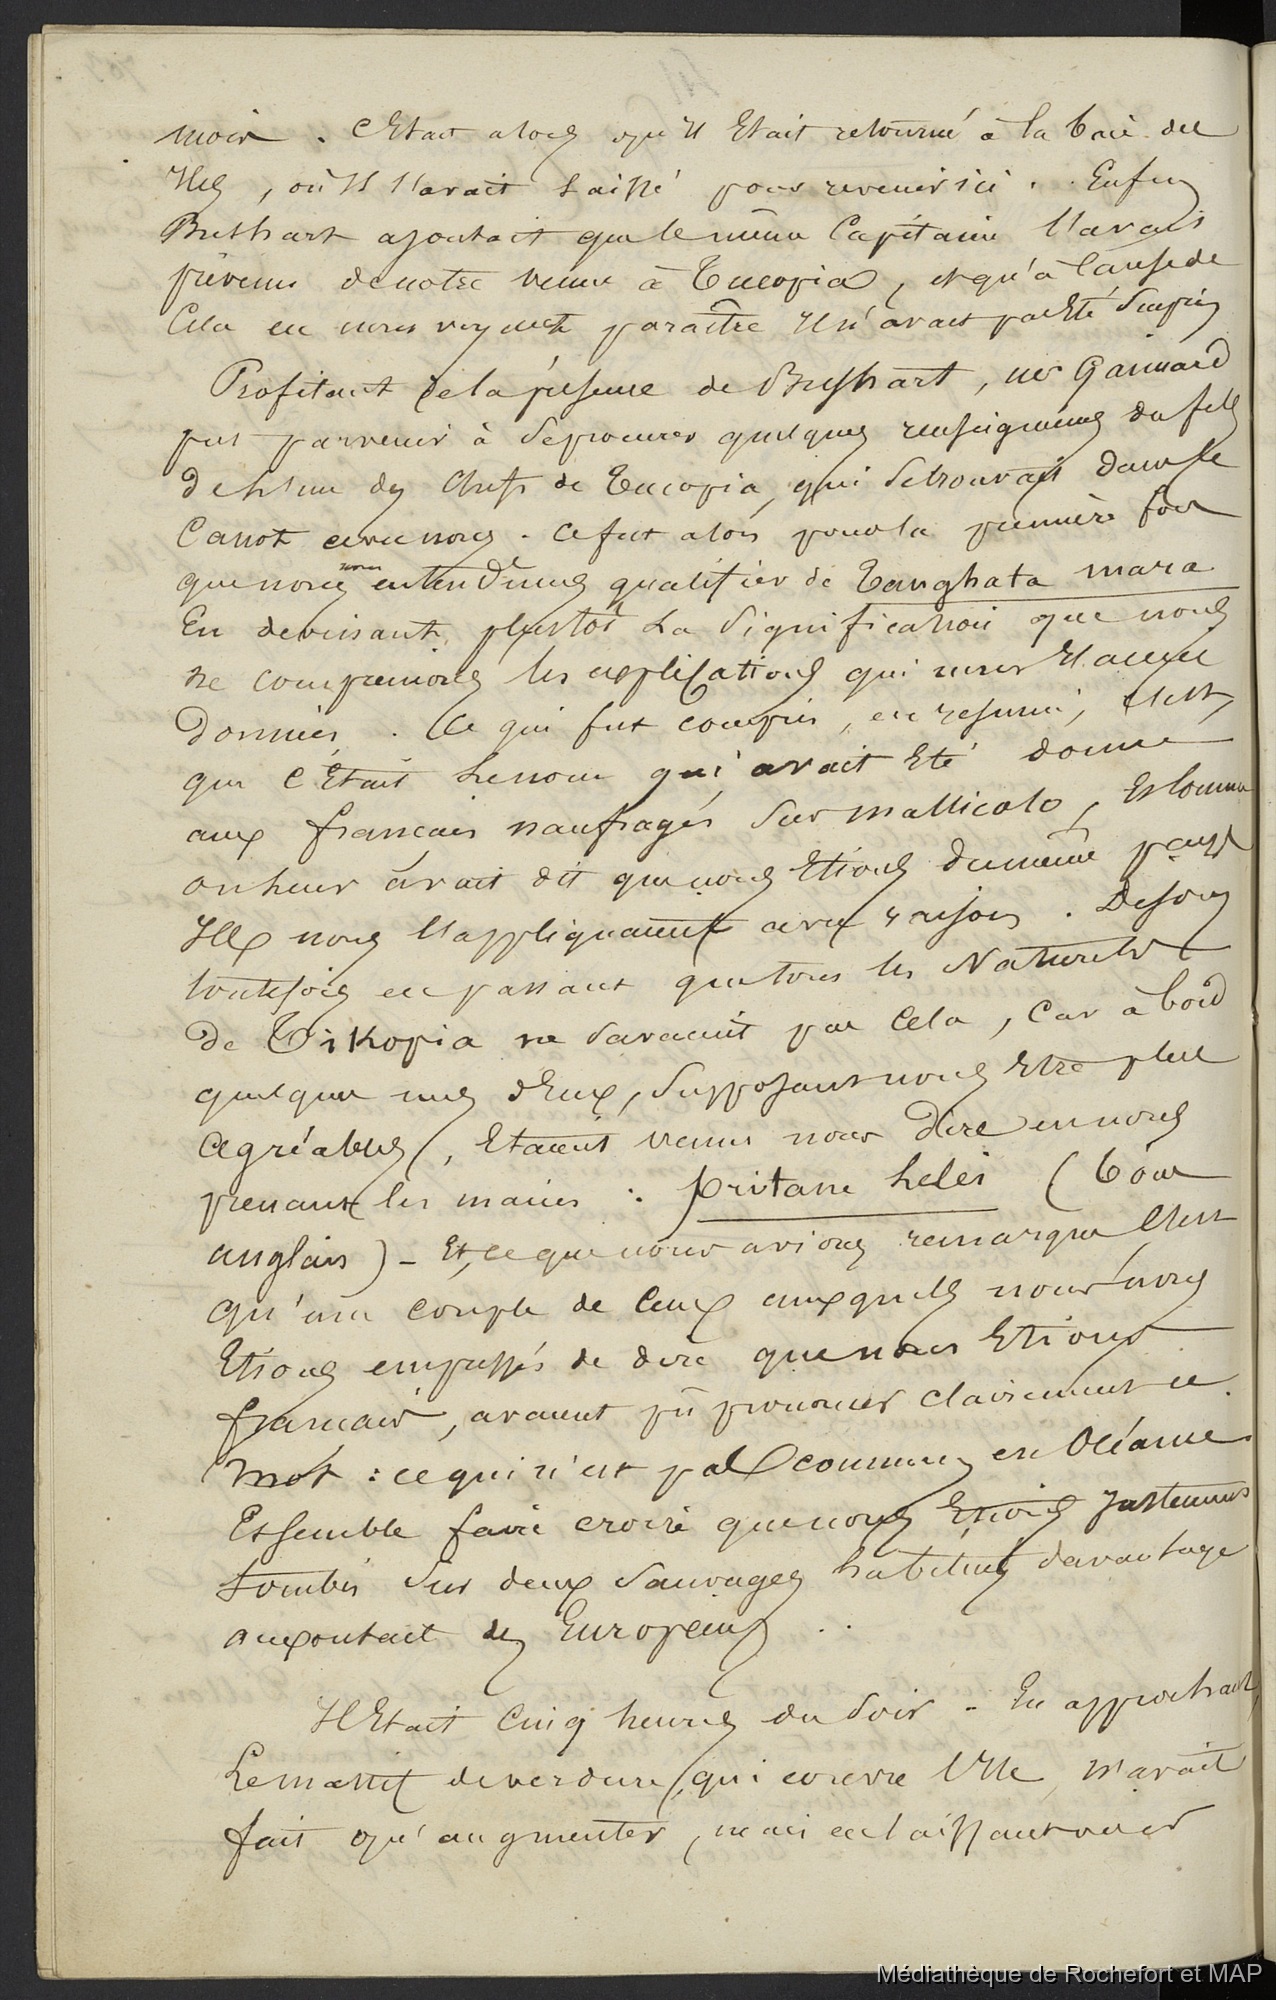 mois . C'Etait alors qu'Il Etait retourné à la baie des
Iles , où Il l'avait laissé pour revenir ici . Enfin
Busshart ajoutait que le même Capitaine l'avait
prévenu de notre venue à Tucopia , et qu'à Cause de
Cela en nous voyant paraître Il n'avait pas Eté Surpris
Profitant de la présence de Busshart , mr Gaimard
put parvenir à Se procurer quelques renseignemens du fils
de l'un des Chefs de Tucopia , qui Se trouvait dans le
Canot avec nous . Ce fut alors pour la première fois
que nous nous entendîmes qualifier de Tanghata mara
En devinant plustôt La Signification que nous
ne comprenions les explications qui nous Etaient
données . Ce qui fut compris , en resumé , C'est ,
que C'Etait Le nom qui avait Eté donné
aux français naufragés Sur mallicolo , Et comme
on leur avait dit que nous Etions du même pays
Ils nous l'appliquaient avec raison . Disons
toutefois en passant que tous les Naturels
de Tikopia ne Savaient pas Cela , Car à bord
quelques uns d'Eux , Supposant nous Etre plus
agréables , Etaient venus nous dire en nous
prenant les mains : pritane lelei ( bons
anglais ) - Et , ce que nous avions remarqué C'est
qu'un couple de Ceux auxquels nous nous
Etions empressés de dire que nous Etions
français , avaient pû prononcer clairement ce
mot : ce qui n'est pas commun en Océanie
Et Semble faire croire que nous Etions Justement
tombés Sur deux Sauvages habitués davantage
au contact des Européens . .
Il Etait Cinq heures du Soir . En approchant ,
Le massif de verdure , qui couvre l'Ile , n'avait
fait qu'augmenter , mais en laissant voir
Médiathèque de Rochefort et MAP